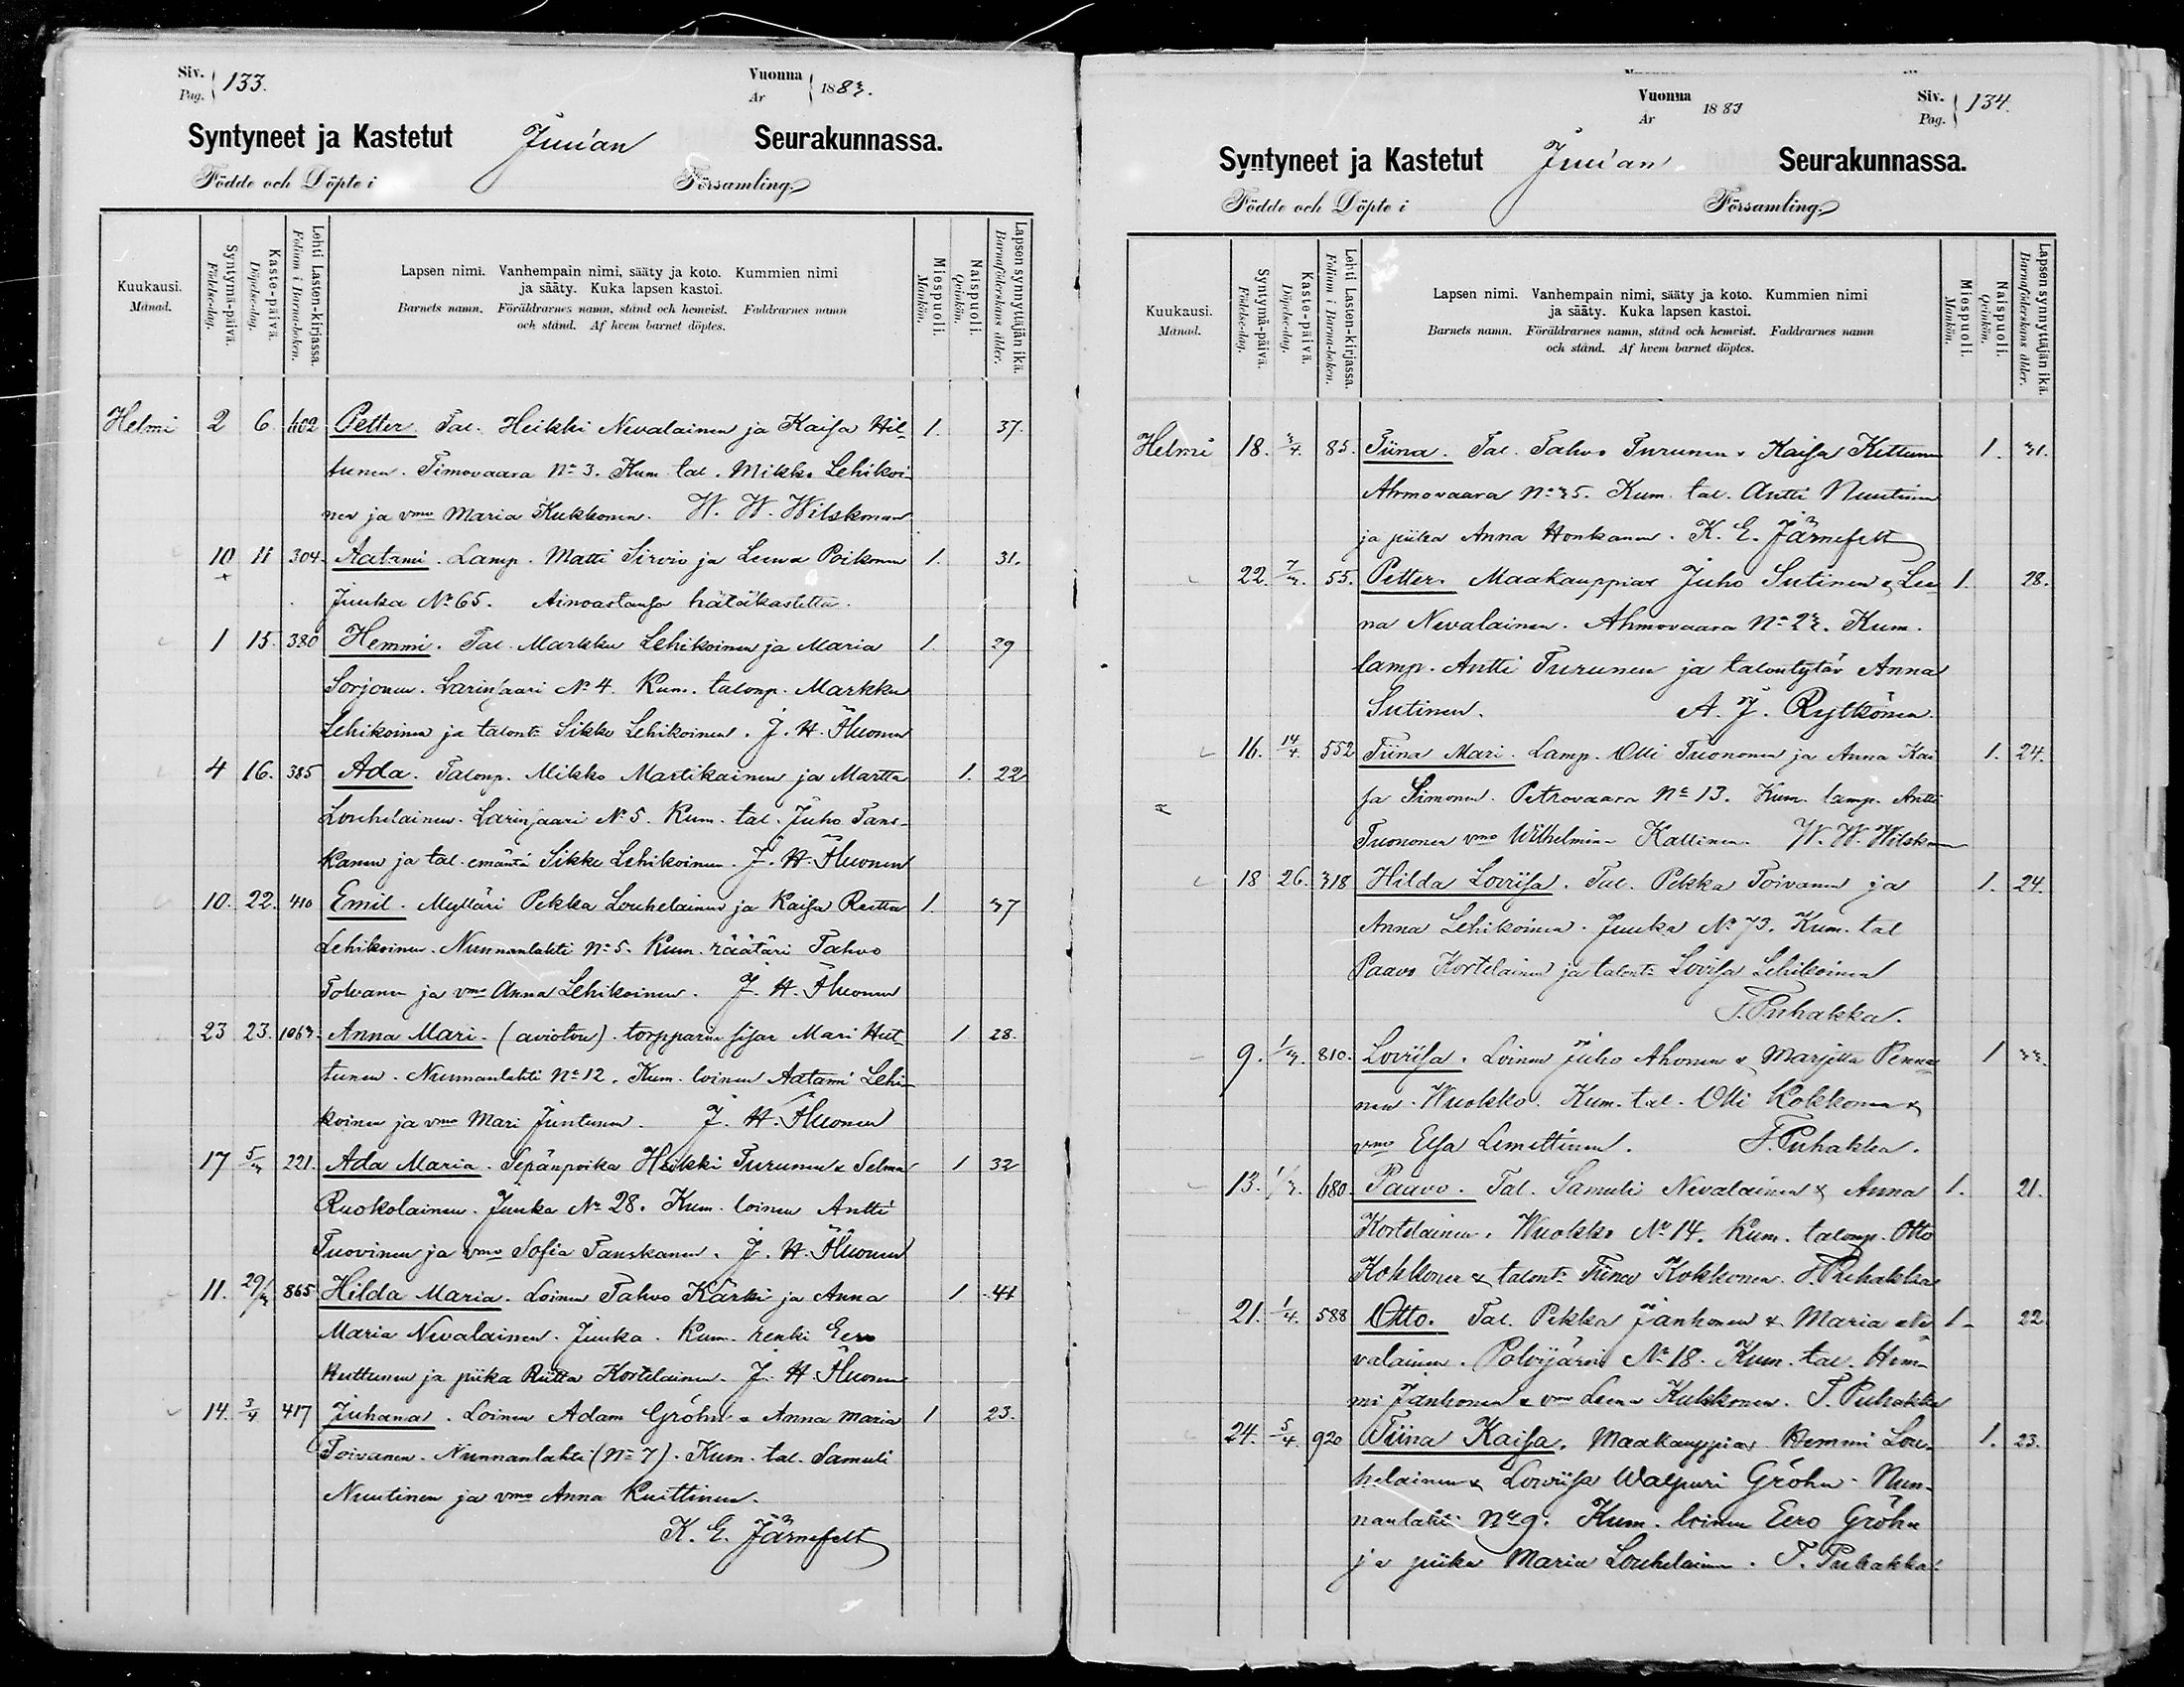 Siv. Pag. 133.
Vuonna År 1883.
Syntyneet ja Kastetut Juuan Seurakunnassa.
Födde och Döpte i Församling.
Kuukausi. Månad.
Syntymä-päivä. Födelse-dag.
Kaste-päivä. Döpelse-dag.
Lehti Lasten-kirjassa. Folium i Barna-boken.
Lapsen nimi. Vanhempain nimi, sääty ja koto. Kummien nimi
ja sääty. Kuka lapsen kastoi.
Barnets namn. Föräldrarnes namn, stånd och hemvist. Faddrarnes namn
och stånd. Af hvem barnet döptes.
Miespuoli. Mankön.
Naispuoli. Qvinkön.
Lapsen synnyttäjän ikä. Barnaföderskans ålder.
Helmi 2 6. 402 Petter. Tal. Heikki Nevalainen ja Kaisa Hil- 1. 37.
tunen. Timovaara No 3. Kum. tal. Mikko Lehikoi-
nen ja vmo Maria Kukkonen. W. W. Wilskman
10 11 304. Aatami. Lamp. Matti Sirviö ja Leena Poikonen 1. 31.
Juuka No 65. Ainoastansa hätäkastettu.
1 15. 380 Hemmi. Tal. Markku Lehikoinen ja Maria 1. 29
Sorjonen. Larinsaari No 4. Kum. talonp. Markku
Lehikoinen ja talont: Sikke Lehikoinen. J. H. Ahonen
4 16. 385 Ada. Talonp. Mikko Martikainen ja Martta 1. 22
Louhelainen. Larinsaari No 5. Kum. tal. Juho Tans-
kanen ja tal. emäntä Sikke Lehikoinen. J. H. Ahonen
10. 22. 410 Emil. Mylläri Pekka Louhelainen ja Kaisa Reetta 1. 37
Lehikoinen. Nunnanlahti No 5. Kum. räätäri Tahvo
Tolvanen ja vmo Anna Lehikoinen. J. H. Ahonen
23 23. 1063. Anna Mari. (avioton). torpparin sisar Mari Hut- 1 28.
tunen. Nunnanlahti No 12. Kum. loinen Aatami Lehi-
koinen ja vmo Mari Juntunen. J. H. Ahonen
17 5/3 221. Ada Maria. Sepänpoika Heikki Turunen & Selma 1 32
Ruokolainen. Juuka No 28. Kum. loinen Antti
Tuovinen ja vmo Sofia Tanskanen. J. H. Ahonen
11. 29/3 865 Hilda Maria. Loinen Tahvo Kärki ja Anna 1 41
Maria Nevalainen. Juuka. Kum. renki Eero
Huttunen ja piika Riitta Kortelainen. J. H. Ahonen
14. 3/4 417 Juhana. Loinen Adam Gröhn & Anna Maria 1 23.
Toivanen. Nunnanlahti (No 7). Kum. tal. Samuli
Nuutinen ja vmo Anna Kuittinen.
K. E. Järnefelt
Vuonna År 1883
Siv. Pag. 134.
Syntyneet ja Kastetut Juuan Seurakunnassa.
Födde och Döpte i Församling.
Kuukausi. Månad.
Syntymä-päivä. Födelse-dag.
Kaste-päivä. Döpelse-dag.
Lehti Lasten-kirjassa. Folium i Barna-boken.
Lapsen nimi. Vanhempain nimi, sääty ja koto. Kummien nimi
ja sääty. Kuka lapsen kastoi.
Barnets namn. Föräldrarnes namn, stånd och hemvist. Faddrarnes namn
och stånd. Af hvem barnet döptes.
Miespuoli. Mankön.
Naispuoli. Qvinkön.
Lapsen synnyttäjän ikä. Barnaföderskans ålder.
Helmi 18. 3/4. 85. Tiina. Tal. Tahvo Turunen & Kaisa Kettunen 1. 31.
Ahmovaara No 35. Kum. tal. Antti Nuutinen
ja piika Anna Honkanen. K. E. Järnefelt
22. 7/3. 55. Petter. Maakauppias Juho Sutinen & Lee- 1. 28.
na Nevalainen. Ahmovaara No 23. Kum.
lamp. Antti Turunen ja talontytär Anna
Sutinen. A. J. Rytkönen.
16. 14/4. 552 Tiina Mari. Lamp. Olli Tuononen ja Anna Kai- 1. 24.
sa Simonen. Petrovaara No 13. Kum. lamp. Antti
Tuononen vmo Wilhelmina Kallinen. W. W. Wilskman
18 26. 318 Hilda Loviisa. Tal. Pekka Toivanen ja 1. 24.
Anna Lehikoinen. Juuka No 73. Kum. tal
Paavo Kortelainen ja talont: Lovisa Lehikoinen
T. Puhakka.
9. 1/3. 810. Loviisa. Loinen Juho Ahonen & Marjetta Penna- 1 33.
nen. Wuokko. Kum. tal. Olli Kokkonen &
vmo Elsa Limettinen. T. Puhakka.
13. 1/3. 680. Paavo. Tal. Samuli Nevalainen & Anna 1. 21.
Kortelainen. Wuokko No 14. Kum. talonp. Otto
Kokkonen & talont: Tiina Kokkonen. T. Puhakka
21. 1/4. 588 Otto. Tal. Pekka Janhonen & Maria Ne- 1 22
valainen. Polvijärvi No 18. Kum. tal. Hem-
mi Janhonen & vmo Leena Kukkonen. T. Puhakka
24. 5/4. 920 Tiina Kaisa. Maakauppias Hemmi Lou- 1. 23.
helainen & Loviisa Walpuri Gröhn. Nun-
nanlahti No 9. Kum. loinen Eero Gröhn
ja piika Maria Louhelainen. T. Puhakka.